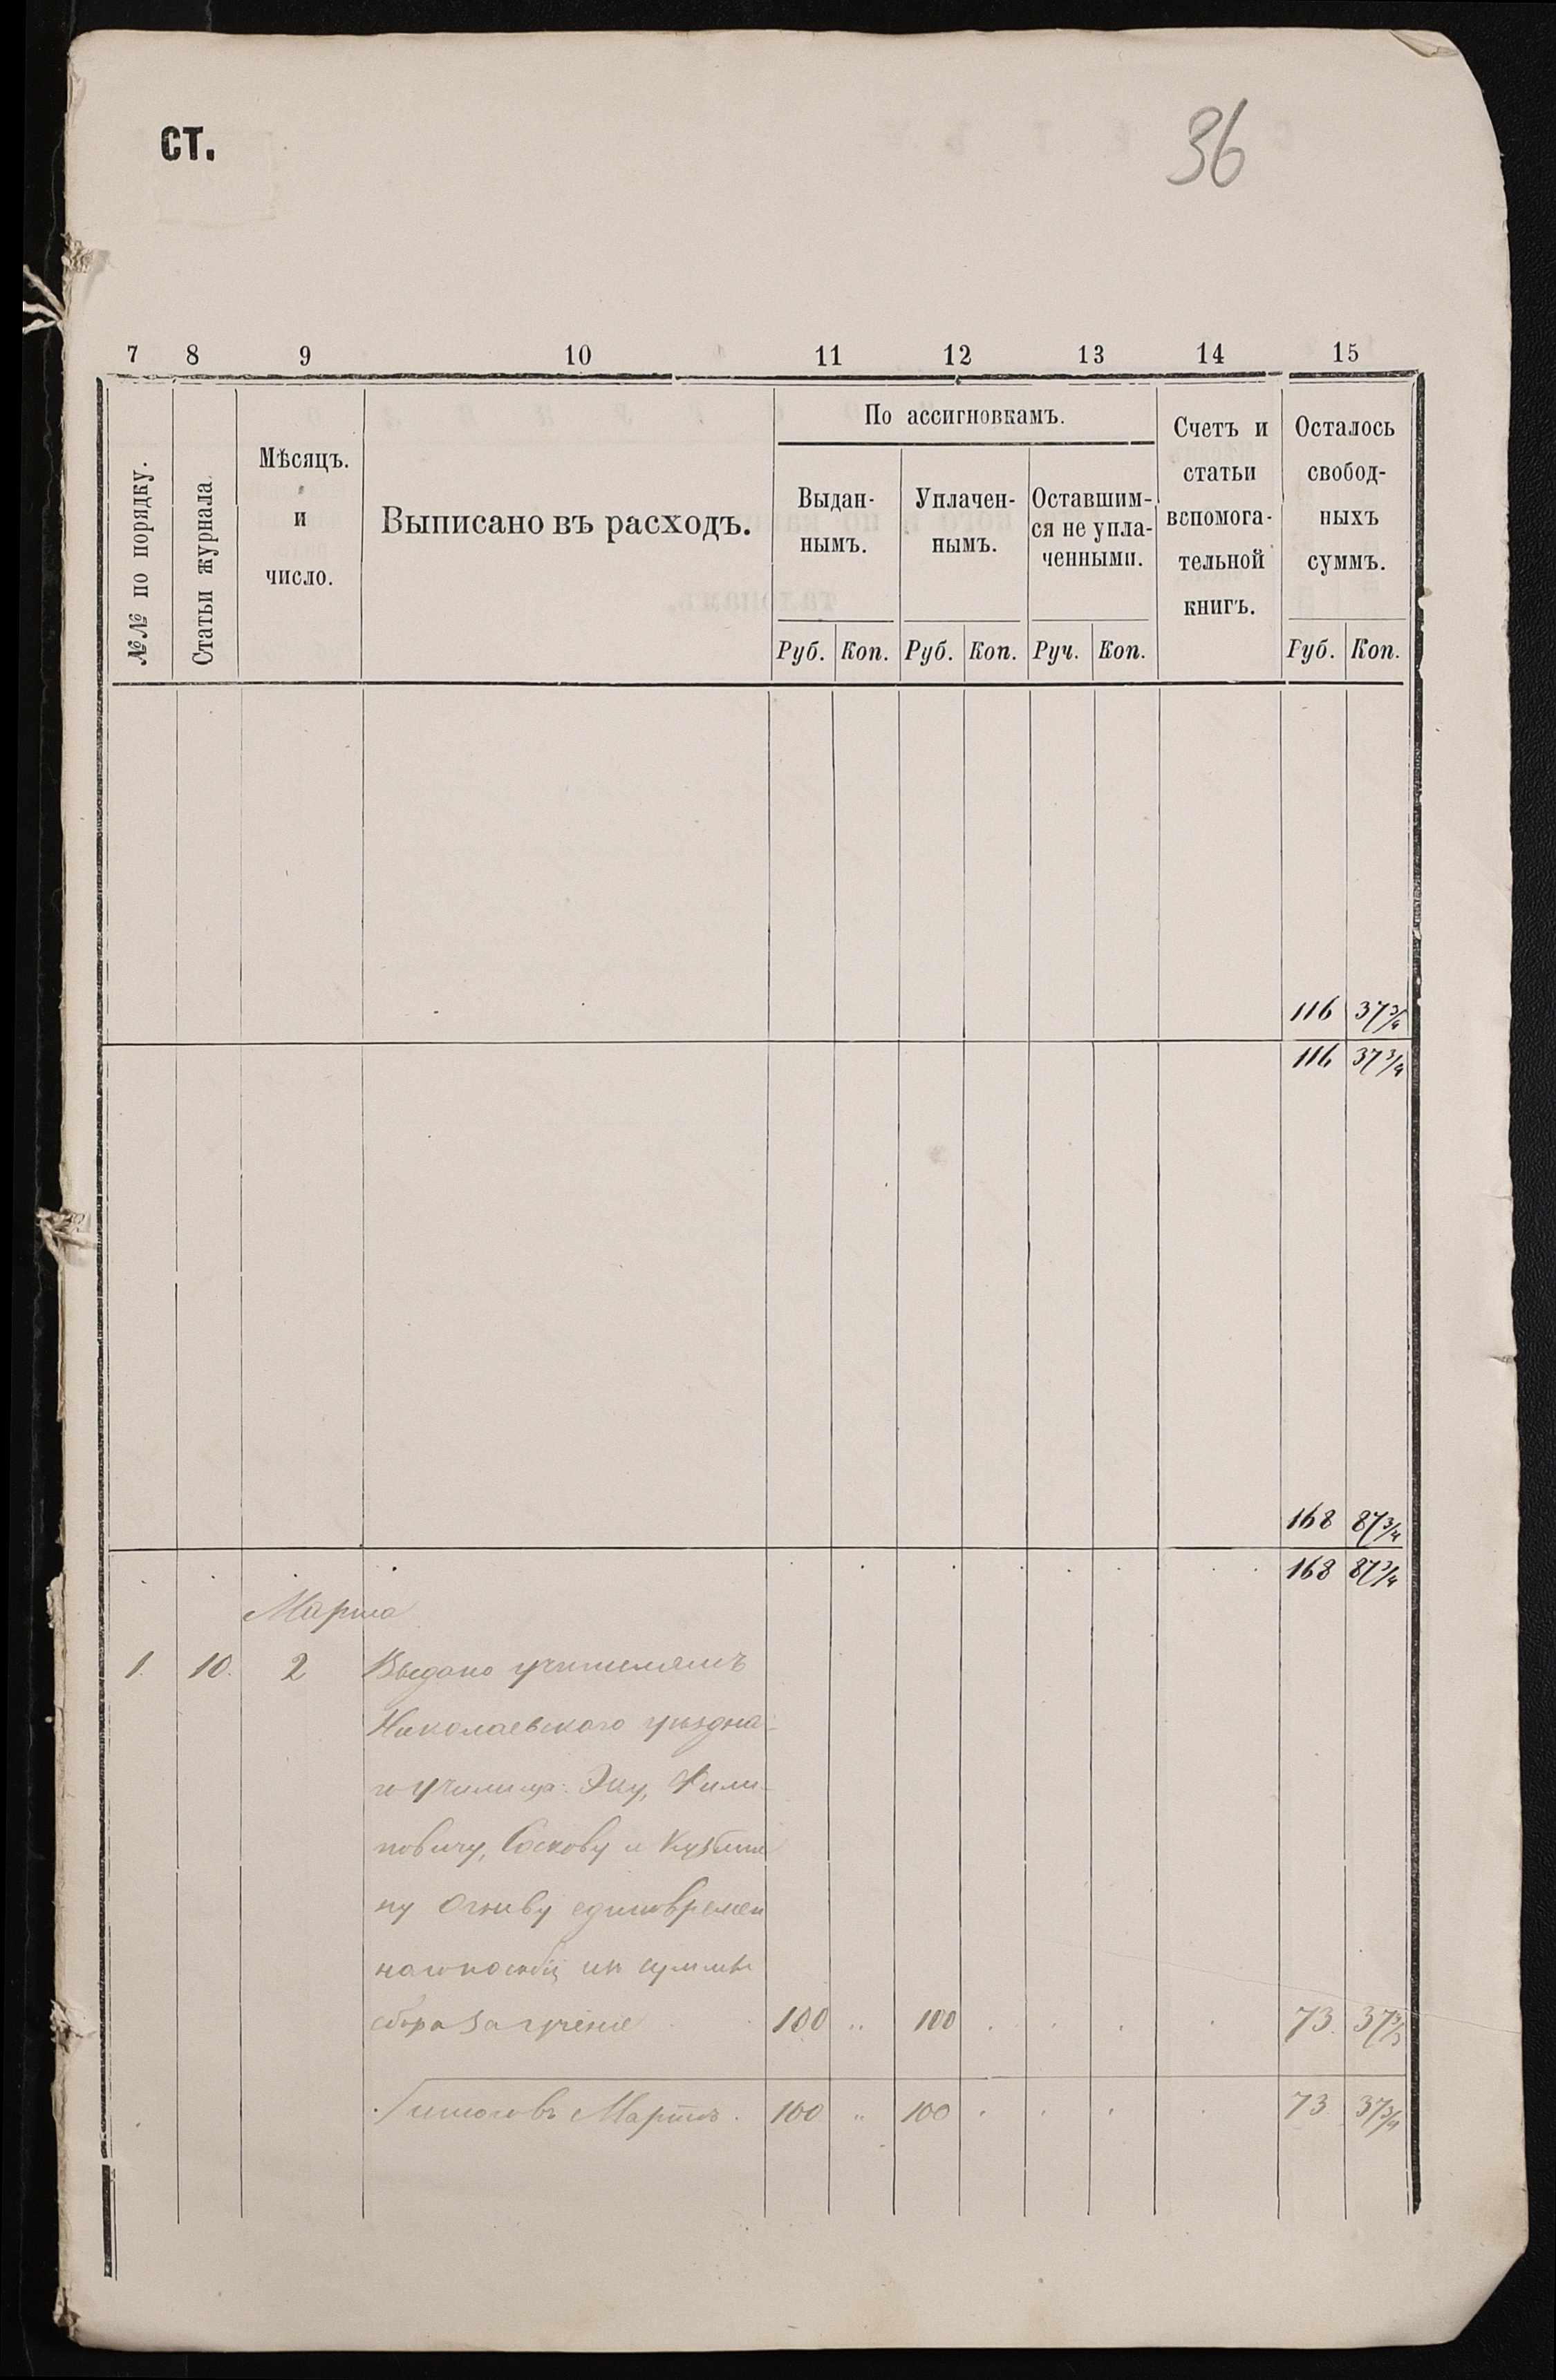 ст.
36
7 8 9 10 11 12 13 14 15
№№ по порядку.
Статьи журнала
Мѣсяцъ.
и
число.
Выписано въ расходъ.
По ассигновкамъ.
Выдан-
нымъ.
Уплачен-
нымъ.
Оставшим-
ся не упла-
ченными.
Счетъ и
статьи
вспомога-
тельной
книгъ.
Осталось
свобод-
ныхъ
суммъ.
Руб. Коп. Руб. Коп. Руч. Коп. Руб. Коп.
116 37 3/4
116 37 3/4
168 87 3/4
168 87 3/4
Марта
1. 10. 2 Выдано учителямъ
Николаевского уѣздна-
го училища: Эку, Фили-
повичу, Соскову и
ну единовремен
наго пособія изъ суммы
сбора за ученіе 100 " 100 73. 37
Итого въ Мартѣ. 100 " 100 73 37 3/4